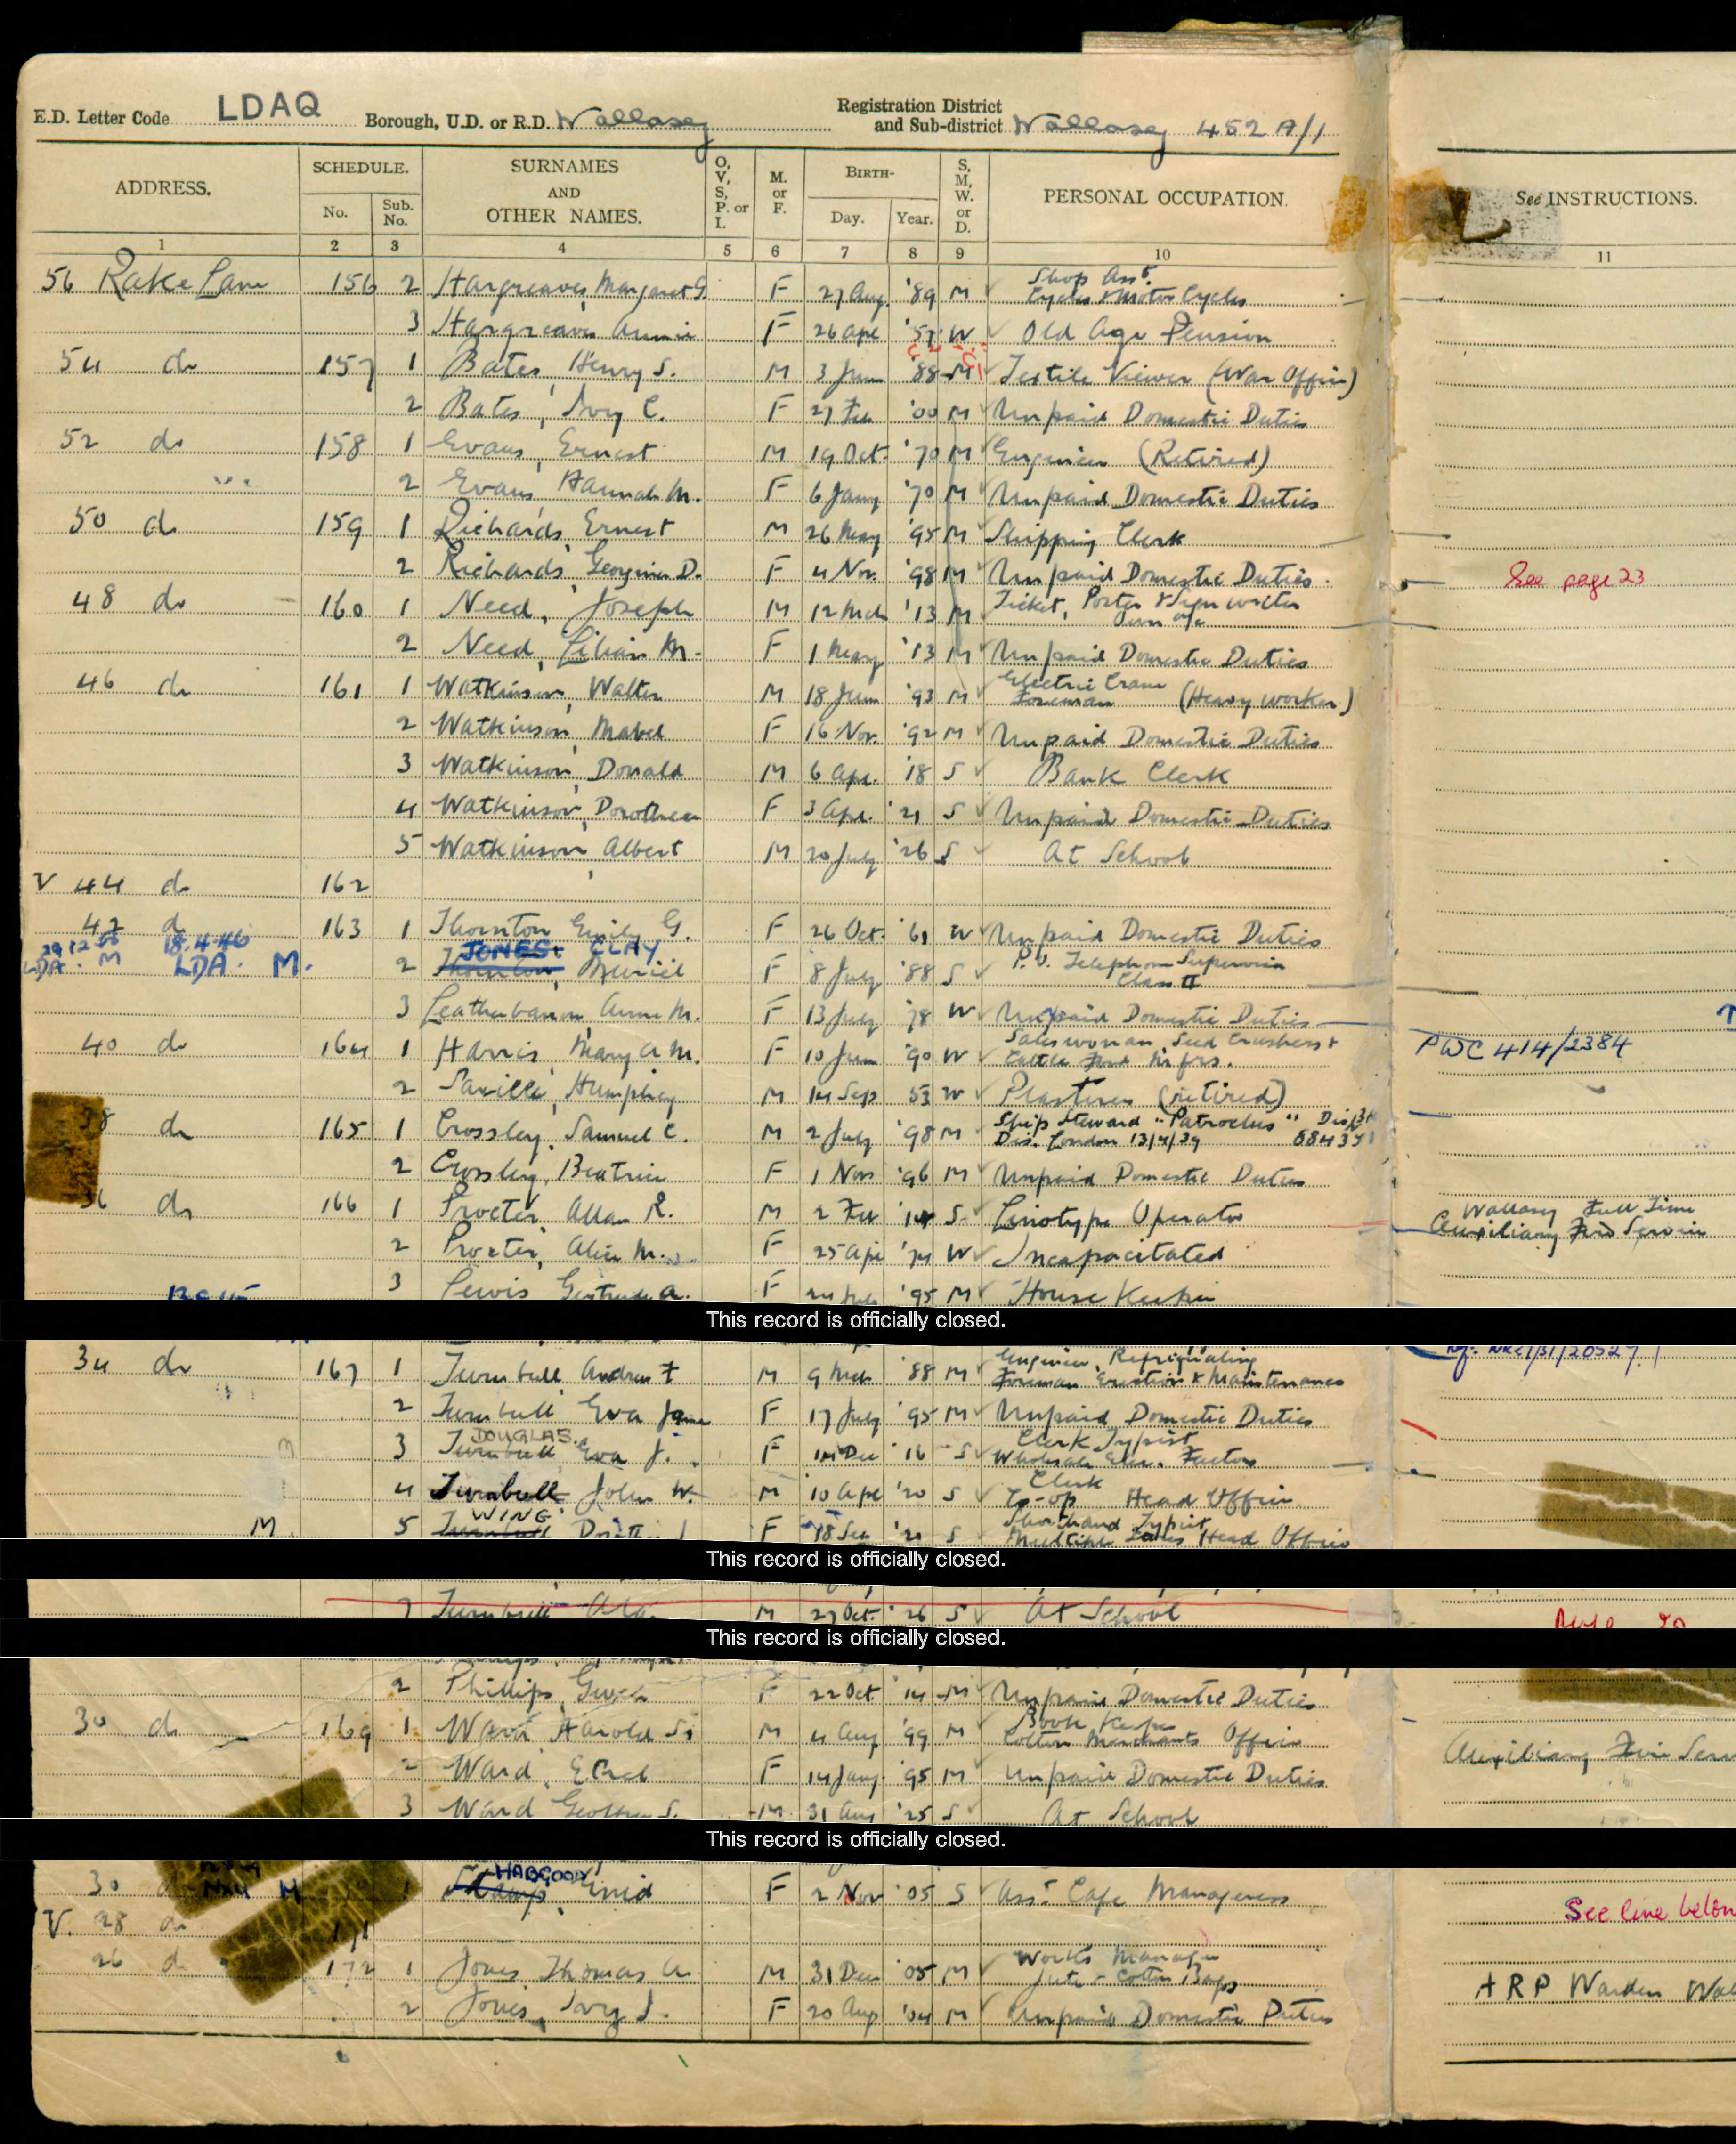 E.D. Letter Code LDAQ Borough, U.D. or R.D. Wallasey Registration District and Sub-district Wallasey 452 A/1
ADDRESS. SCHEDULE. No. Sub. No. SURNAMES AND OTHER NAMES. O, V, S, P. or I. M. or F. BIRTH- Day. Year. S, M, W. or D. PERSONAL OCCUPATION. See INSTRUCTIONS.
1 2 3 4 5 6 7 8 9 10 11
56 Rake Lane 156 2 Hargreaves, Margaret G. F 27 Aug. '89 M Shop Asst. Cycles & Motor Cycles
3 Hargreaves Annie F 26 Apl '57 W Old Age Pension
54 do 157 1 Bates, Henry S. M 3 Jun '88 M Textile Viewer (War Office)
2 Bates, Ivy C. F 27 Feb '00 M Unpaid Domestic Duties
52 do 158 1 Evans, Ernest M 19 Oct. '70 M Engineer (Retired)
2 Evans, Hannah M. F 6 Jany '70 M Unpaid Domestic Duties
50 do 159 1 Richards, Ernest M 26 May '95 M Shipping Clerk
2 Richards, Georgina D. F 4 Nov. '98 M Unpaid Domestic Duties. See page 23
48 do 160 1 Need, Joseph M 12 Mch '13 M Ticket, Poster & Sign writer Own a/c
2 Need, Lilian M. F 1 May '13 M Unpaid Domestic Duties
46 do 161 1 Watkinson, Walter M 18 Jun '93 M Electric Crane Foreman (Heavy Worker)
2 Watkinson, Mabel F 16 Nov. '92 M Unpaid Domestic Duties
3 Watkinson, Donald M 6 Apl. '18 S Bank Clerk
4 Watkinson, Dorothea F 3 Apl. '21 S Unpaid Domestic Duties
5 Watkinson, Albert M 20 July '26 S At School
V 44 do 162
42 do 163 1 Thornton Emily G. F 26 Oct. '61 W Unpaid Domestic Duties
29 12 18.4.46 JONES. CLAY
LDA. M LDA. M. 2 Thornton, Muriel F 8 July '88 S P.O. Telephone Supervisor Class II
3 Leatherbarrow, Annie M. F 13 July '78 W Unpaid Domestic Duties
40 do 164 1 Harris, Mary A M. F 10 Jun '90 W Saleswoman, Seed Crushers & Cattle Food Mfrs. PWC 414/2384
2 Saville, Humphrey M 14 Sep 53 W Plasterer (retired)
38 do 165 1 Crossley, Samuel C. M 2 July '98 M Ship Steward "Patroclus" Dis. London 13/4/39
2 Crossley, Beatrice F 1 Nov '96 M Unpaid Domestic Duties
36 do 166 1 Procter, Allan R. M 2 Feb '14 S Linotype Operator Wallasey Full Time Auxiliary Fire Service
2 Procter, Alice M. F 25 Apl '74 W Incapacitated
3 Lewis Gertrude A. F '95 M House Keeper
This record is officially closed.
34 do 167 1 Turnbull Andrew F M 9 Mch '88 M Engineer, Refrigerating Foreman Erection & Maintenance
2 Turnbull Eva Jane F 17 July '95 M Unpaid Domestic Duties
DOUGLAS.
3 Turnbull, Eva J. F 14 Dec '16 S Clerk Typist Wholesale Elec. Factors
4 Turnbull John W. M 10 Apl '20 S Clerk Co-op Head Office
WING
M. 5 Turnbull F 18 S Shorthand Typist Multiple Head Office
This record is officially closed.
7 Turnbull M 27 Oct. '26 S At School
This record is officially closed.
2 Phillips, F 22 Oct '14 M Unpaid Domestic Duties
30 do 169 1 Ward Harold M 4 Aug '99 M Book Keeper Cotton Merchants Office Auxiliary Fire Serv
2 Ward, Ethel F 14 Jany '95 M Unpaid Domestic Duties
3 Ward Geoffrey S. M 31 Aug '25 S At School
This record is officially closed.
HABGOOD
30 M Enid F 2 Nov '05 S Asst. Cafe Manageress See line below
V. 28 do 171
26 do 172 1 Jones, Thomas A M 31 Dec '05 M Works Manager Jute - Cotton Bags ARP Warden Wal
2 Jones, Ivy J. F 20 Aug '04 M Unpaid Domestic Duties